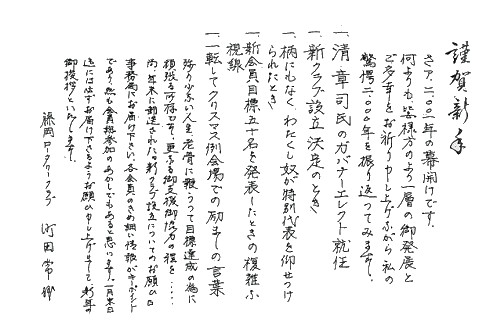 謹賀新年
さア、二〇〇一年の幕開けです。
何よりも、皆様方のより一層の御発展と
ご多幸をお祈り申し上げながら私の
驚愕二〇〇〇年を振り返ってみます。
一、清 章司氏のガバナーエレクト就任
一、新クラブ設立決定のとき
一、柄にもなく、わたくし奴が特別代表を仰せつけ
られたとき
一、新会員目標五十名を発表したときの複雑な
視線
一、一転してクリスマス例会場での励ましの言葉
残り少ない人生、老骨に鞭うって目標達成の為に
頑張る所存です。更なる御支援御協力の程を……
尚、年末に郵送された新クラブ設立についてのお願いは
事務局にお届け下さい。各会員のきめ細い情報がキーポイント
であり、然も会員総参加のあかしでもあると思います。一月末日
迄には必ずお届け下さるようお願い申し上げまして、新年の
御挨拶といたします。
藤岡ロータリークラブ 町田常